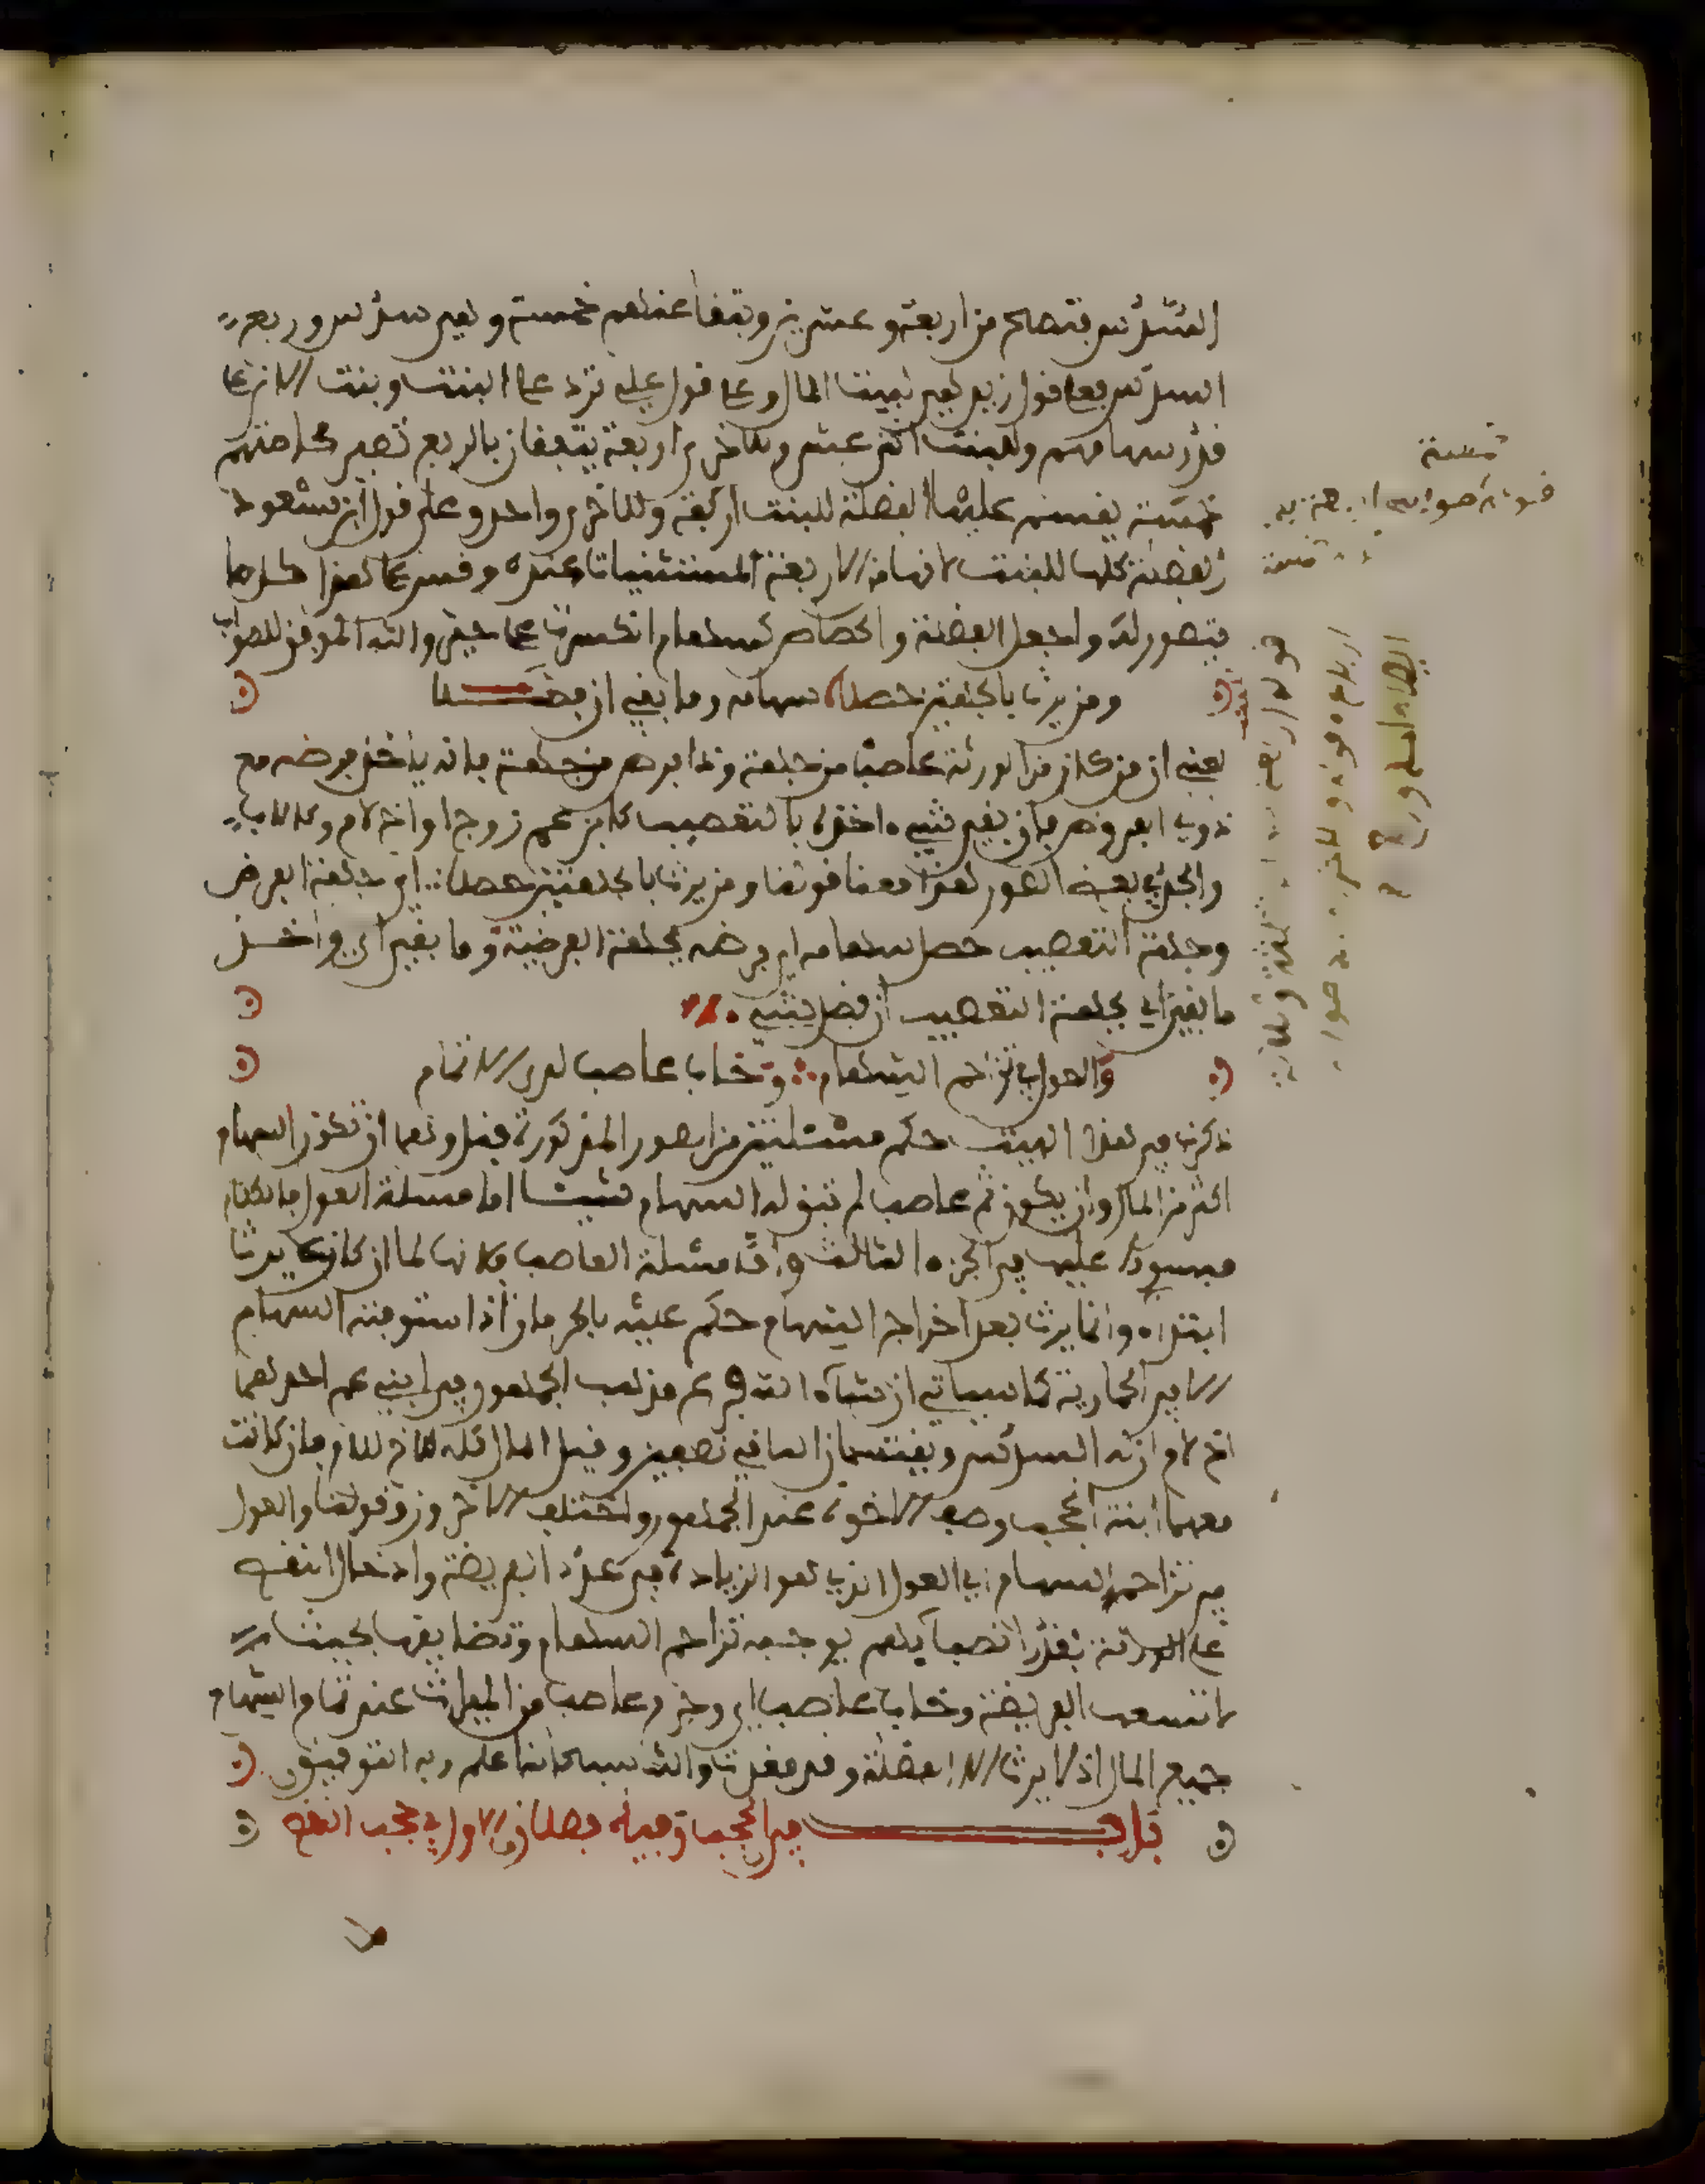 السدس فتصح من اربعة وعشرين وبقا عندهم خمسة وهي سدس وربع
السدس فعلى قول زيد هي لبيت المال وعلى قول علي ترد على البنت وبنت الابن على
قدر سهامهم وللبنت اثنى عشر وللاخرى اربعة يتفقان بالربع تصير كل منهم
خمسة يقسم عليها الفضلة للبنت اربعة وللاخرى واحد وعلى قول ابن مسعود
الفضلة كلها للبنت لانها من الاربعة المستثنيات عنده وقس على هذا كل ما
يتصور لك واجعل الفضلة والحصاص كسهام انكسرت على حيز والله الموفق للصواب
ومن يرث بالجهتين حصلا سهامه وما بقي ان فضلا
يعني ان من كان من الورثة عاصبا من جهة وذا فرض من جهة فانه ياخذ فرضه مع
ذوي الفروض فان بقي شيء اخذه بالتعصيب كابن عم زوج او اخ لام وكالاب
والجد في بعض الصور هذا معنا قولنا ومن يرث بالجهتين حصلا اي جهة الفرض
وجهة التعصيب حصل سهامه اي فرضه بجهة الفرضية وما بقي اي واخذ
ما بقي اي بجهة التعصيب ان فضل شيء
والعول في تزاحم السهام وخاب عاصب لدى الاتمام
ذكرت في هذا البيت حكم مسئلتين من الصور المذكورة قبل وهما ان تكون السهام
اكثر من المال وان يكون ثم عاصب لم تبق له السهام شيئا اما مسئلة العول فالكلام
مبسوط عليها في الجزء الثالث واما مسئلة العاصب فلانها لما ان كان لا يرث
ابتداء وانما يرث بعد اخراج السهام حكم عليه بالحرمان اذا استوفته السهام
الا في الحمارية كما سياتي ان شاء الله ومذهب الجمهور في ابني عم احدهما
اخ لام ان له السدس ويقتسمان الباقي نصفين وقيل المال كله للاخ للام فان كانت
معهما ابنة انحجب وصف الاخوة عند الجمهور واختلف الاخرون وقولنا والعول
في تزاحم السهام اي العول الذي هو الزيادة في عدد الفريضة وادخال النقص
على الورثة بقدر انصبائهم يوجبه تزاحم السهام وتضايقها بحيث
لا تسعها الفريضة وخاب عاصب اي وحرم عاصب من الميراث عند تمام السهام
جميع المال اذ لا يرث الا الفضلة وقد فقدت والله سبحانه اعلم وبه التوفيق
باب في الحجب وفيه فصلان الاول في حجب النقص